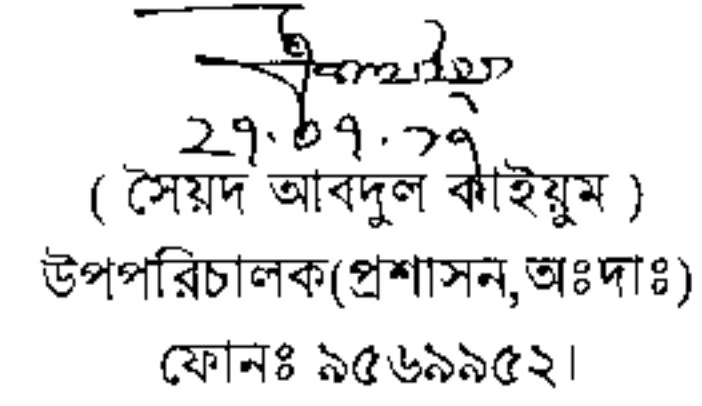 ( সৈয়দ আবদুল কাইয়ুম )
উপপরিচালক(প্রশাসন,অঃদাঃ)
ফোনঃ ৯৫৬৯৯৫২।